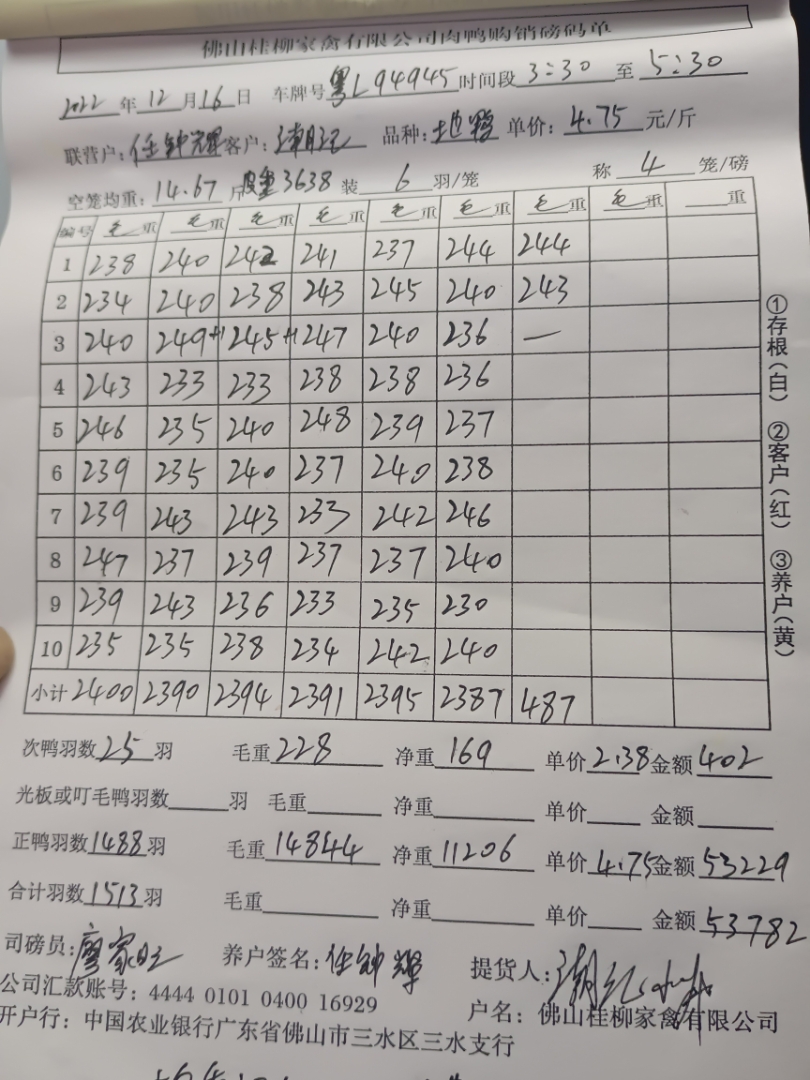 佛山桂柳家禽有限公司肉鸭购销磅码单
2022年12月16日 车牌号粤L94945时间段3:30至5:30
联营户:任钟辉客户: 品种: 单价:4.75元/斤
空笼均重:14.67斤皮重3638装6羽/笼 称4笼/磅
编号 毛重 毛重 毛重 毛重 毛重 毛重 毛重 毛重 重
1 238 240 242 241 237 244 244
2 234 240 238 243 245 240 243
3 240 249+1 245+1 247 240 236 —
4 243 233 233 238 238 236
5 246 235 240 248 239 237
6 239 235 240 237 240 238
7 239 243 243 233 242 246
8 247 237 239 237 237 240
9 239 243 236 233 235 230
10 235 235 238 234 242 240
小计 2400 2390 2394 2391 2395 2387 487
次鸭羽数25羽 毛重228 净重169 单价2.38金额402
光板或叮毛鸭羽数 羽 毛重 净重 单价 金额
正鸭羽数1488羽 毛重14844 净重11206 单价4.75金额53229
合计羽数1513羽 毛重 净重 单价 金额53782
司磅员:廖家旺 养户签名:任钟辉 提货人:
公司汇款账号:4444 0101 0400 16929 户名:佛山桂柳家禽有限公司
开户行:中国农业银行广东省佛山市三水区三水支行
①存根(白) ②客户(红) ③养户(黄)